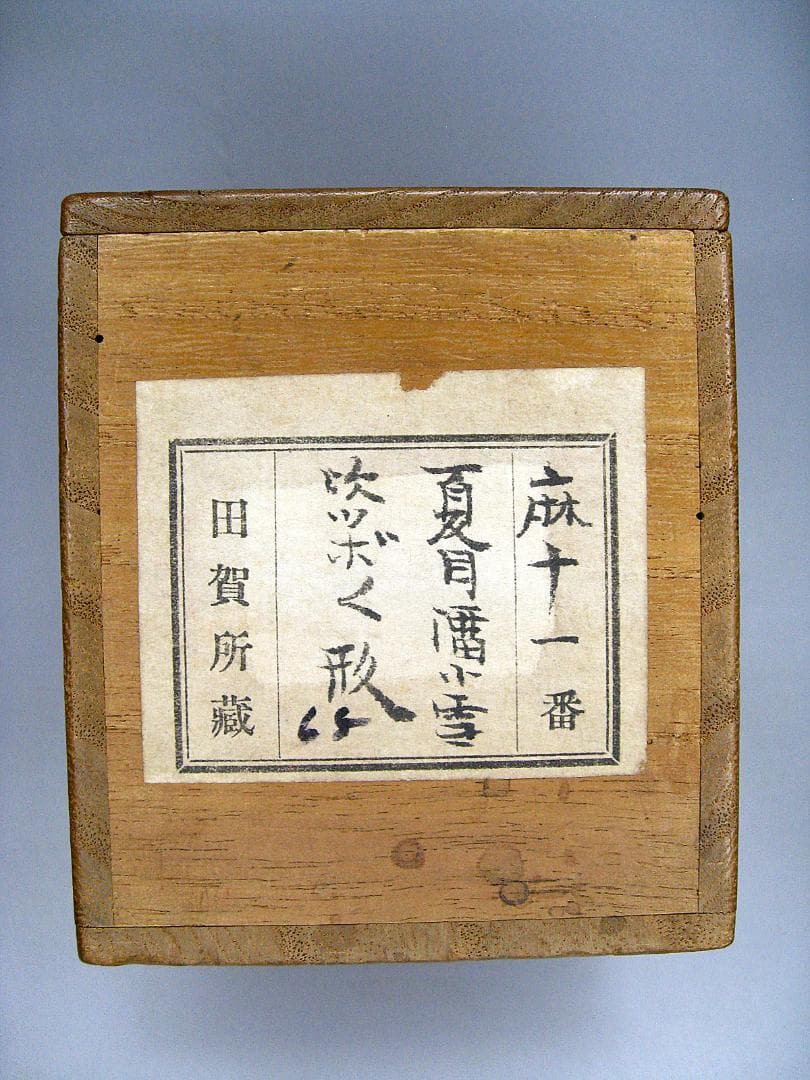 麻十一番
夏月小雪
ツボく形
田賀所藏